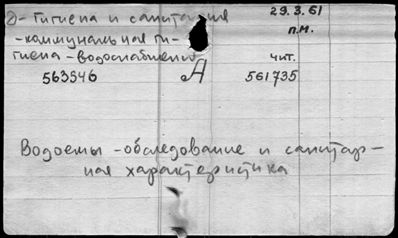 2)- Гигиена и санитария
29.3.61
-коммунальная ги-
п.м.
гиена-водоснабжение
чит.
563546
А
561735
Водоемы -обследование и санитар-
ная характеристика